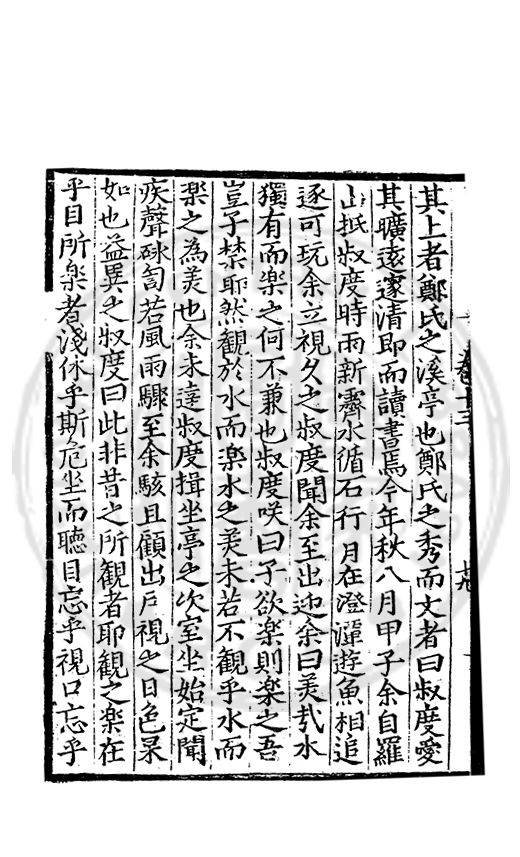 其上者鄭氏之溪亭也鄭氏之秀而文者曰叔度愛
其曠遠邃清即而讀書焉今年秋八月甲子余自羅
山抵叔度時雨新霽水循石行月在澄潭遊魚相追
逐可玩余立視久之叔度聞余至出迎余曰美㢤水
獨有而楽之何不兼也叔度咲曰子欲楽則楽之吾
豈子禁耶然観於水而楽水之美未若不観乎水而
楽之為美也余未達叔度揖坐亭之次室坐始定聞
疾聲砯訇若風雨驟至余駭且顧出戶視之日色杲
如也益異之叔度曰此非昔之所観者耶観之楽在
乎目所楽者淺休乎斯危坐而聴目忘乎視口忘乎
卷十三